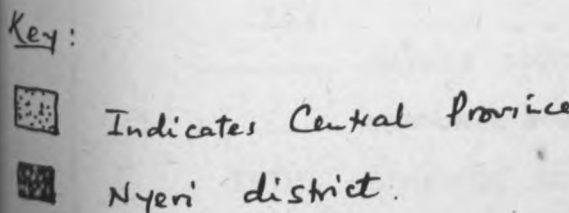 Key:
Indicates Central Province
Nyeri district.